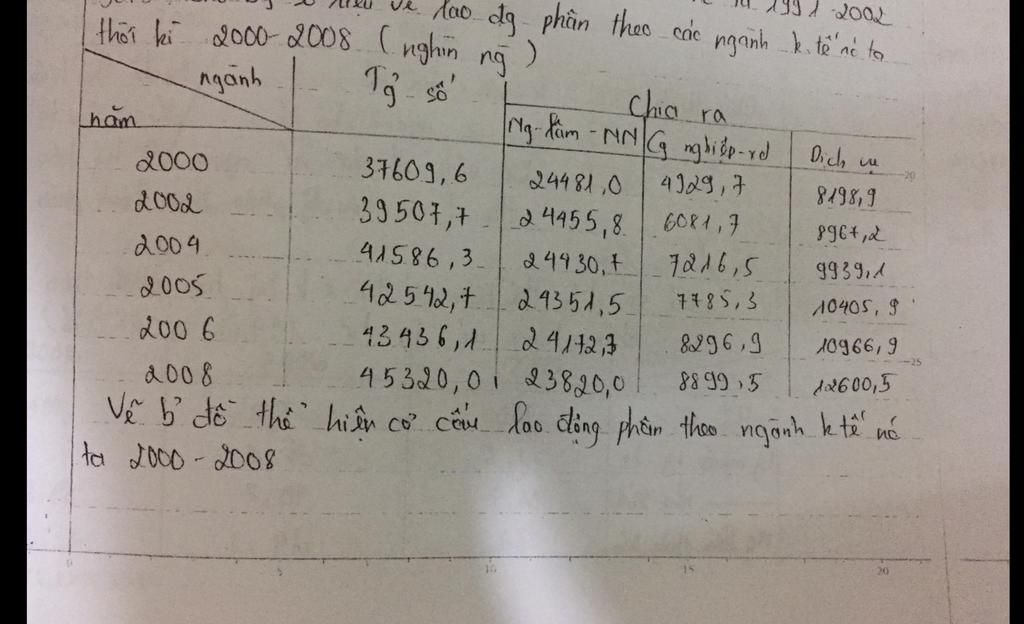 số liệu về lao đg phân theo các ngành k.tế nc ta
1991-2002
thời kì 2000-2008 (nghìn ng)
ngành
năm
Tg số
Chia ra
Ng-Lâm-NN
Cg nghiệp-xd
Dịch vụ
2000 37609,6 24481,0 4929,7 8198,9
2002 39507,7 24455,8 6081,7 8967,2
2004 41586,3 24430,7 7216,5 9939,1
2005 42542,7 24351,5 7785,3 10405,9
2006 43436,1 24172,3 8296,9 10966,9
2008 45320,0 23820,0 8899,5 12600,5
Vẽ b' đồ thể hiện cơ cấu lao động phân theo ngành k tế nc
ta 2000-2008
0 5 10 15 20
20
25